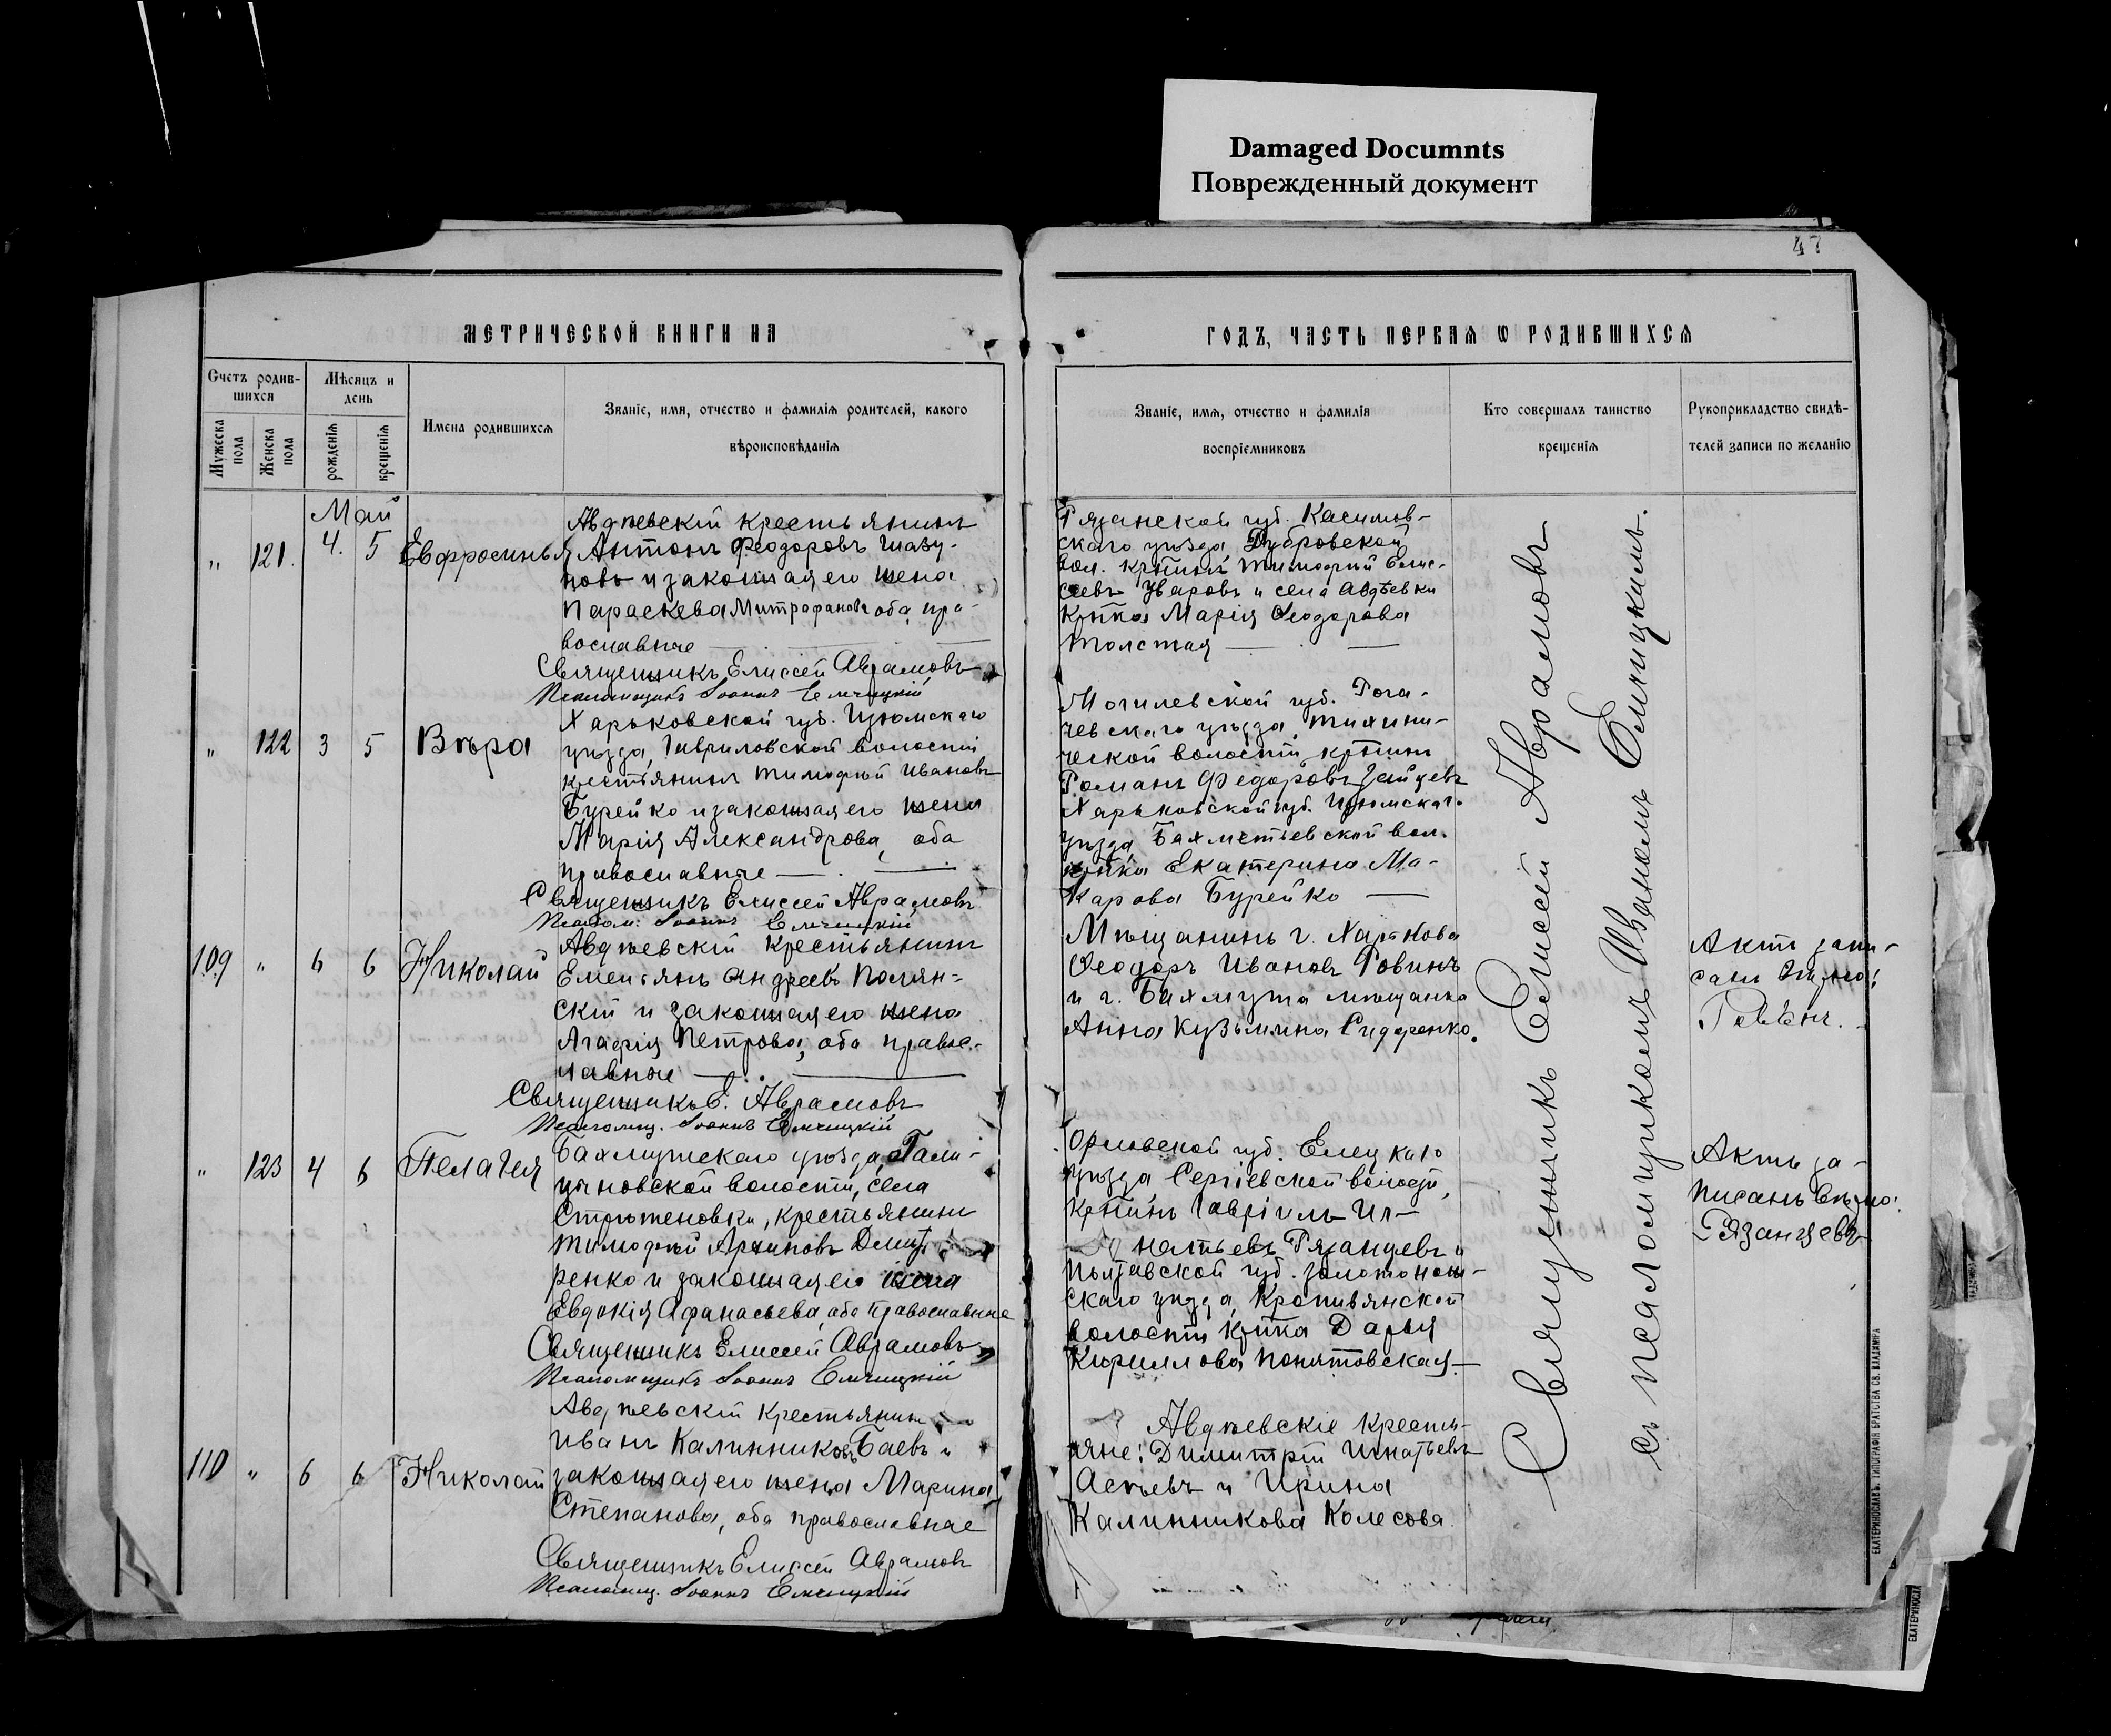 Damaged Documnts
Поврежденный документ
47
МЕТРИЧЕСКОЙ КНИГИ НА
ГОДЪ, ЧАСТЬ ПЕРВАЯ Ѡ РОДИВШИХСЯ
Счетъ родив-
шихся
Мужеска
пола
Женска
пола
Мѣсяцъ и
день
рожденія
крещенія
Имена родившихся
Званіе, имя, отчество и фамилія родителей, какого
вѣроисповѣданія
Званіе, имя, отчество и фамилія
воспріемниковъ
Кто совершалъ таинство
крещенія
Рукоприкладство свидѣ-
телей записи по желанію
Май
„ 121. 4. 5 Евфросинья
Авдѣевскій крестьянинъ
Антонъ Феодоровъ
новъ и законная его жена
Параскева Митрофанова оба пра-
вославные
Священникъ Елиссей Аврамовъ
Псаломщикъ Іоаннъ
Рязанской губ. Касимов-
скаго уѣзда Дубровской
вол. кр̃нинъ Тимофий Елис-
сеевъ Уваровъ и села Авдѣевки
Кр̃нка Марія Ѳеодорова
Толстая
„ 122 3 5 Вѣра
Харьковской губ. Изюмскаго
уѣзда, Гавриловской волости
крестьянинъ Тимофей Ивановъ
Бурейко и законная его жена
Марія Александрова, оба
православные
Священникъ Елиссей Аврамовъ
Псалом. Іоаннъ
Могилевской губ. Рога-
чевскаго уѣзда, Тихини-
ческой волости, кр̃нинъ
Романъ Федоровъ Зайцевъ
Харьковской губ. Изюмскаго
уѣзда Бахметьевской вол.
кр̃нка Екатерина Ма-
карова Бурейко
109 „ 6 6 Николай
Авдѣевскій крестьянинъ
Емельянъ Андреевъ Полян-
скій и законная его жена
Агафія Петрова, оба правос-
лавные
Священникъ Е. Аврамовъ
Псаломщ. Іоаннъ
Мѣщанинъ г. Харькова
Ѳеодоръ Ивановъ Ровинъ
и г. Бахмута мѣщанка
Анна Кузьмина Сидоренко.
Актъ запи-
санъ
„ 123 4 6 Пелагея
Бахмутскаго уѣзда, Гали-
цыновской волости, села
крестьянинъ
Тимофей Архиповъ
ренко и законная его жена
Евдокія Афанасьева, оба православные
Священникъ Елиссей Аврамовъ
Псаломщикъ Іоаннъ
Орловской губ. Елецкаго
уѣзда Сергіевской волости,
Кр̃нинъ Гавріилъ Иг-
натьевъ Рязанцевъ и
Полтавской губ. Золотонош-
скаго уѣзда, Кропивянской
волости кр̃нка Дарья
Кириллова Понятовская
Актъ за-
писанъ
Рязанцевъ
110 „ 6 6 Николай
Авдѣевскій крестьянинъ
Иванъ Калинниковъ Баевъ и
законная его жена Марина
Степанова, оба православные
Священникъ Елиссей Аврамовъ
Псаломщ. Іоаннъ
Авдѣевскіе кресть-
яне: Димитрій Игнатьевъ
и Ирина
Калинникова Колесова
Священникъ Елиссей Аврамовъ
съ псаломщикомъ Иваномъ
ЕКАТЕРИНОСЛАВЪ. ТИПОГРАФІЯ БРАТСТВА СВ. ВЛАДИМІРА